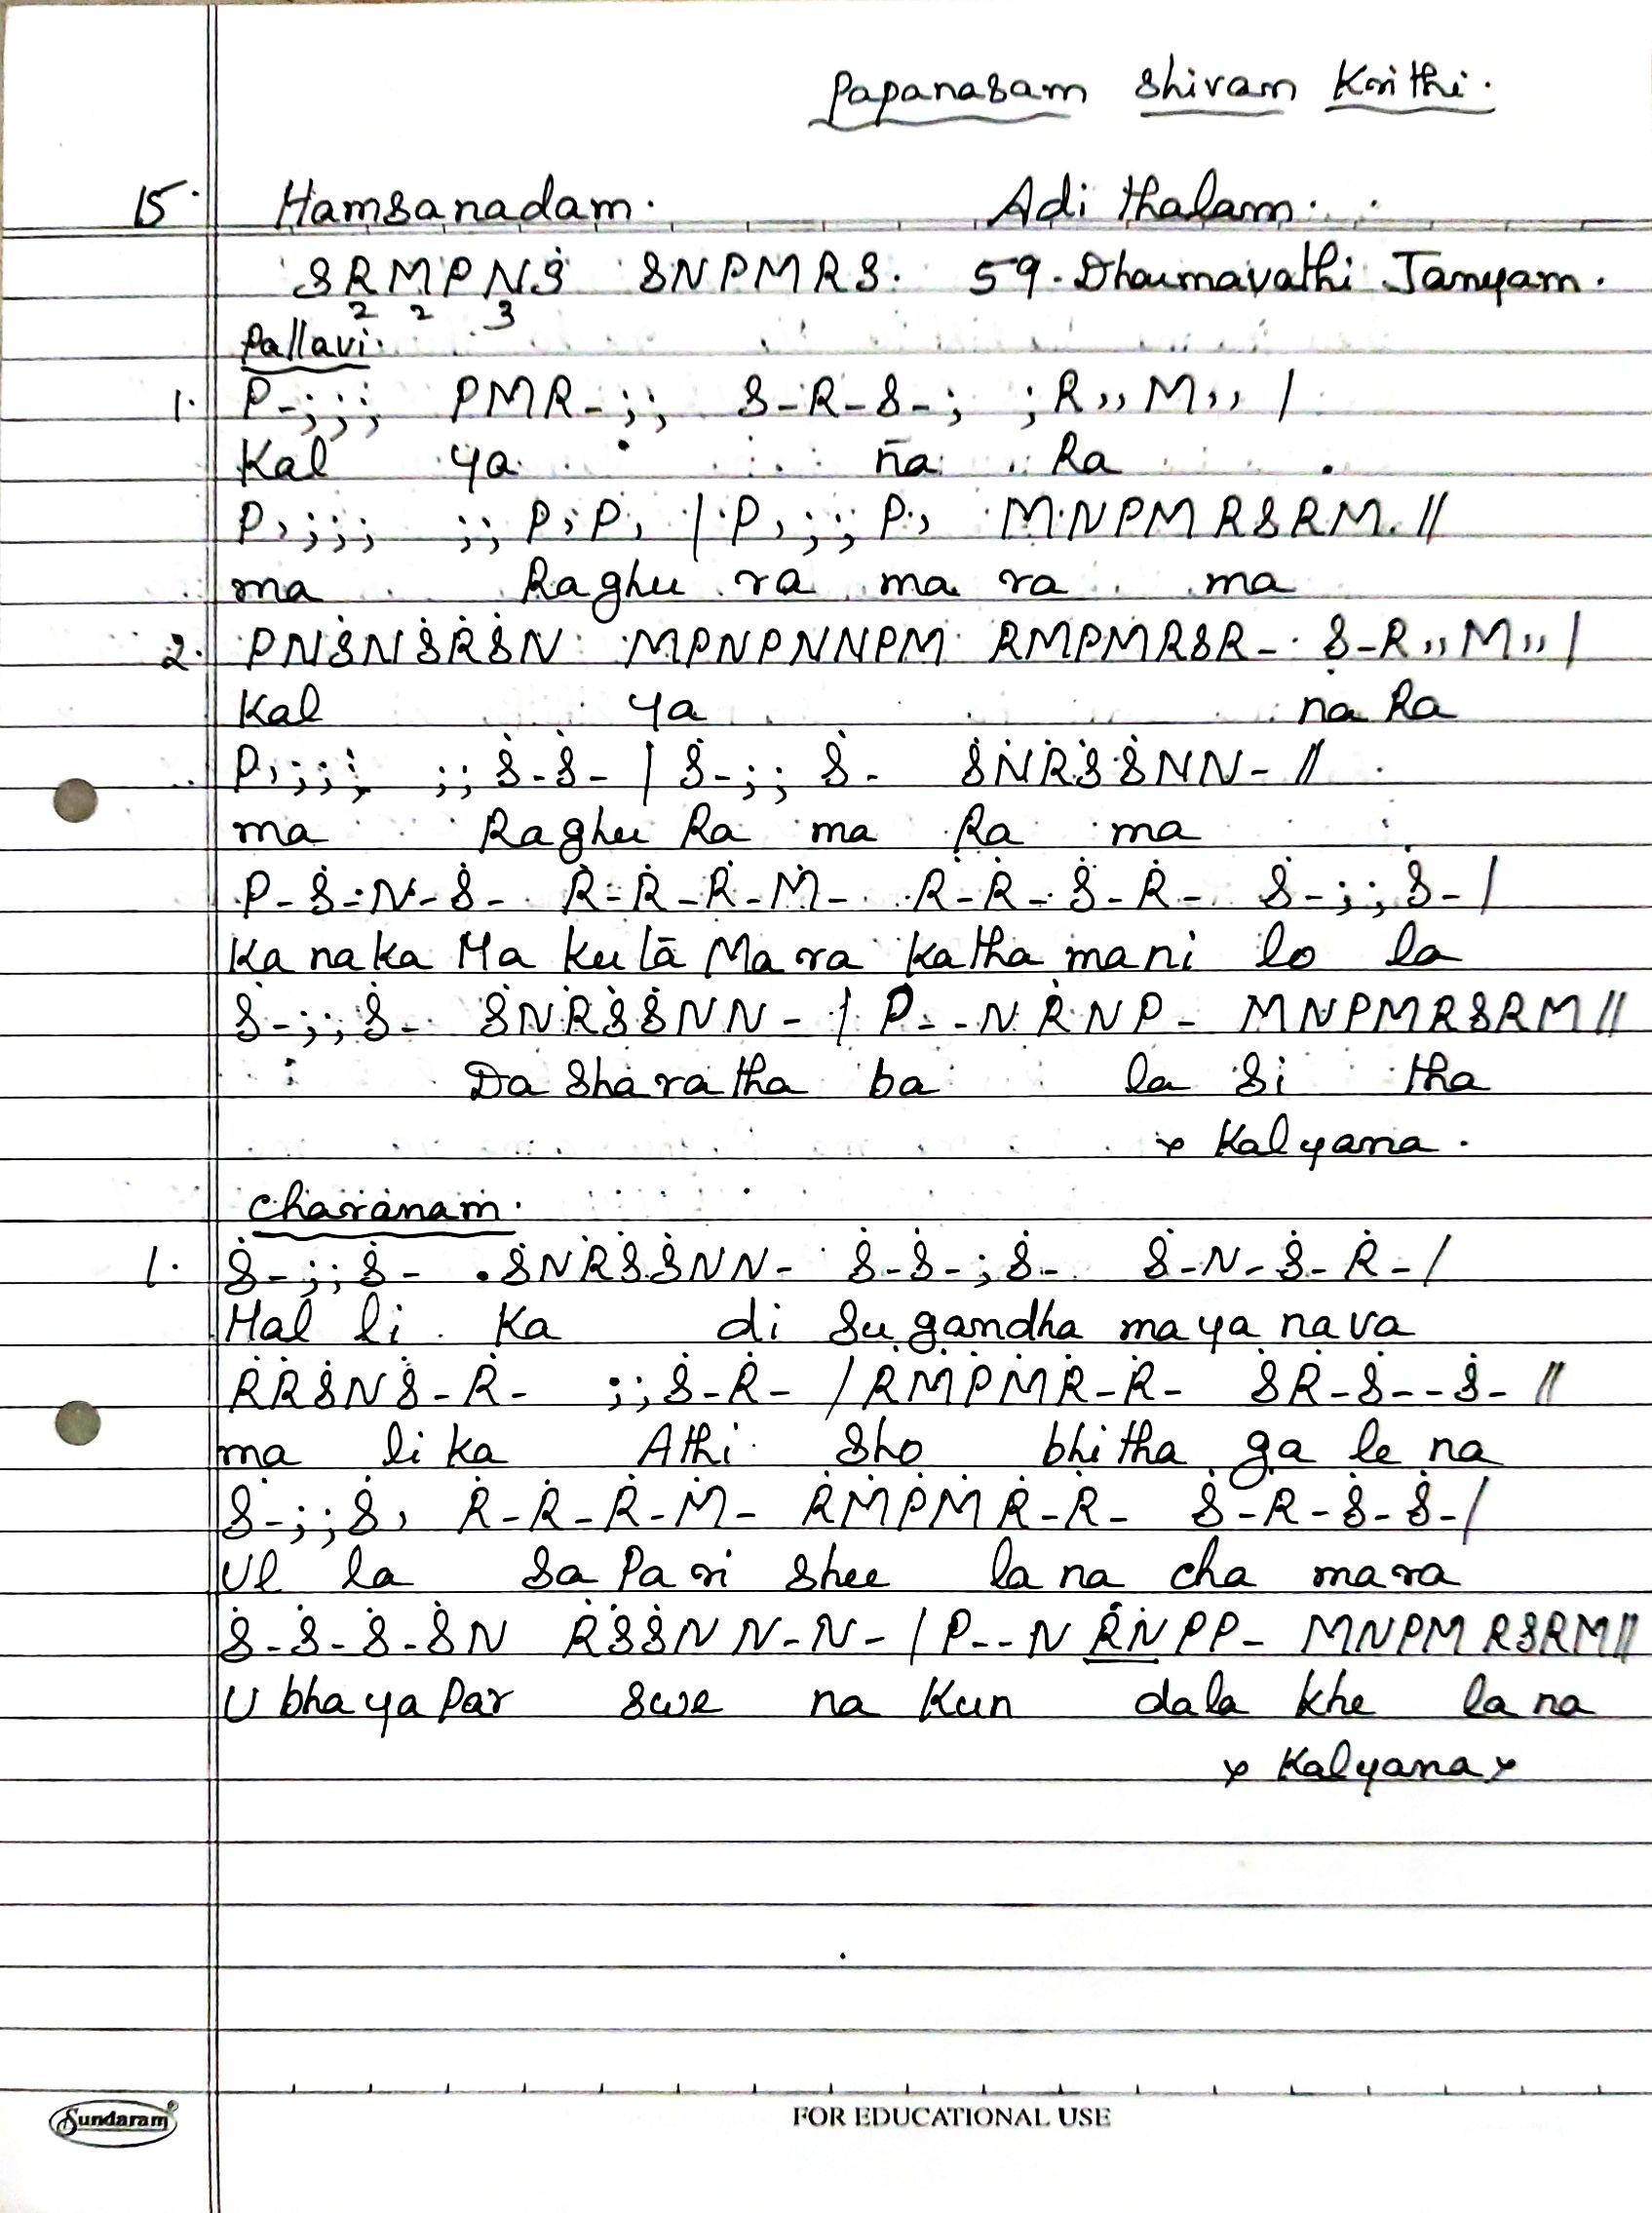 Papanasam Shivam Krithi.
15. Hamsanadam. Adi thalam.
S R M P N Ṡ S N P M R S. 59. Dharmavathi Janyam.
2 2 3
Pallavi.
1. P-;;; PMR-;; S-R-S-; ;R,,M,, /
Kal ya . n̄a Ra .
P,;;; ;;P,P, / P,;;P,, MNPMRSRM. //
ma Raghu ra ma ra ma
2. PNṠNṠṘṠN MPNPNNPM RMPMRSR- S-R,,M,, /
Kal ya na Ra
P,;;; ;;Ṡ-Ṡ- / Ṡ-;;Ṡ- ṠNṘṠṠNN- //
ma Raghu Ra ma Ra ma
P-Ṡ-N-Ṡ- Ṙ-Ṙ-Ṙ-Ṁ- Ṙ-Ṙ-Ṡ-Ṙ- Ṡ-;;Ṡ- /
Ka naka Ma ku tā Ma ra katha mani lo la
Ṡ-;;Ṡ- ṠNṘṠṠNN- / P--NṘNP- MNPMRSRM //
Da sharatha ba la Si tha
x Kalyana.
Charanam.
1. Ṡ-;;Ṡ- .ṠNṘṠṠNN- Ṡ-Ṡ-;Ṡ- Ṡ-N-Ṡ-Ṙ- /
Mal li Ka di Su gandha maya nava
ṘṘṠNṠ-Ṙ- ;;Ṡ-Ṙ- / ṘṀṖṀṘ-Ṙ- ṠṘ-Ṡ--Ṡ- //
ma li ka Athi Sho bhitha ga le na
Ṡ-;;Ṡ, Ṙ-Ṙ-Ṙ-Ṁ- ṘṀṖṀṘ-Ṙ- Ṡ-Ṙ-Ṡ-Ṡ- /
Ul la Sa Pari Shee la na cha mara
Ṡ-Ṡ-Ṡ-ṠN ṘṠṠNN-N- / P--NṘNPP- MNPMRSRM //
U bhaya Par swe na Kun dala khe la na
x Kalyana x
Sundaram
FOR EDUCATIONAL USE